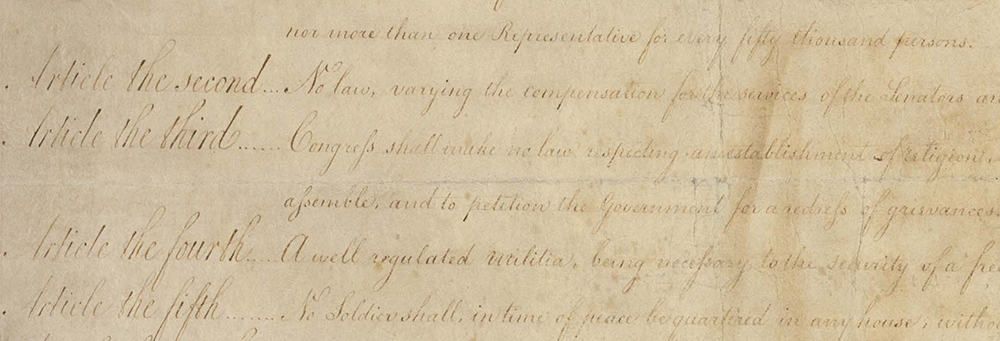 nor more than one Representative for every fifty thousand persons.
Article the second... No law, varying the compensation for the services of the Senators an
Article the third...... Congress shall make no law respecting an establishment of religion,
assemble, and to petition the Government for a redress of grievances.
Article the fourth..... A well regulated militia, being necessary to the security of a fre
Article the fifth........ No Soldier shall, in time of peace be quartered in any house, witho